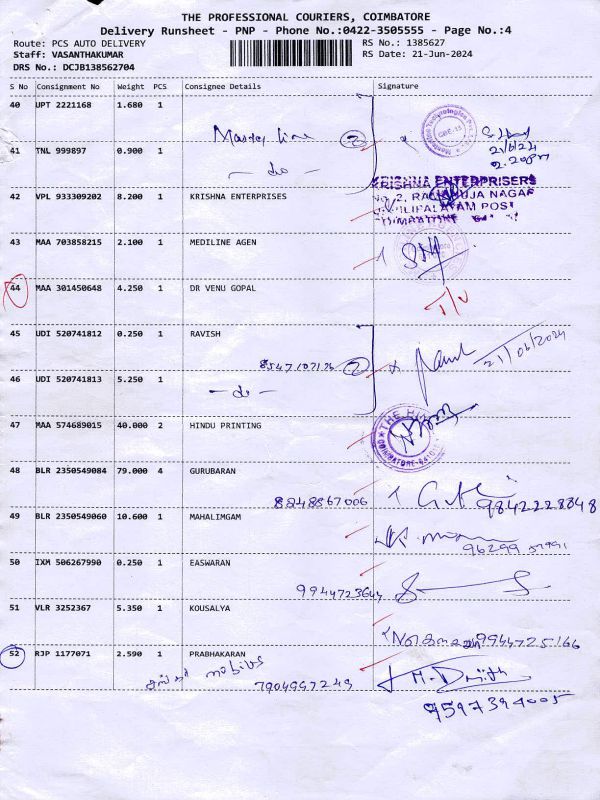 THE PROFESSIONAL COURIERS, COIMBATORE
Delivery Runsheet - PNP - Phone No.:0422-3505555 - Page No.:4
Route: PCS AUTO DELIVERY
RS No.: 1385627
Staff: VASANTHAKUMAR
RS Date: 21-Jun-2024
DRS No.: DCJB138562704
S No Consignment No Weight PCS Consignee Details Signature
40 UPT 2221168 1.680 1
Master line 2
21/6/24
2.20pm
41 TNL 999897 0.900 1
- do -
KRISHNA ENTERPRISERS
42 VPL 933309202 8.200 1 KRISHNA ENTERPRISES
43 MAA 703858215 2.100 1 MEDILINE AGEN
44 MAA 301450648 4.250 1 DR VENU GOPAL
45 UDI 520741812 0.250 1 RAVISH
21/06/2024
2
46 UDI 520741813 5.250 1
- do -
47 MAA 574689015 40.000 2 HINDU PRINTING
THE
COIMBATORE
48 BLR 2350549084 79.000 4 GURUBARAN
8248867006
9842228848
49 BLR 2350549060 10.600 1 MAHALIMGAM
96299
50 IXM 506267990 0.250 1 EASWARAN
9944723644
51 VLR 3252367 5.350 1 KOUSALYA
9944725166
52 RJP 1177071 2.590 1 PRABHAKARAN
7904997249
9597394005